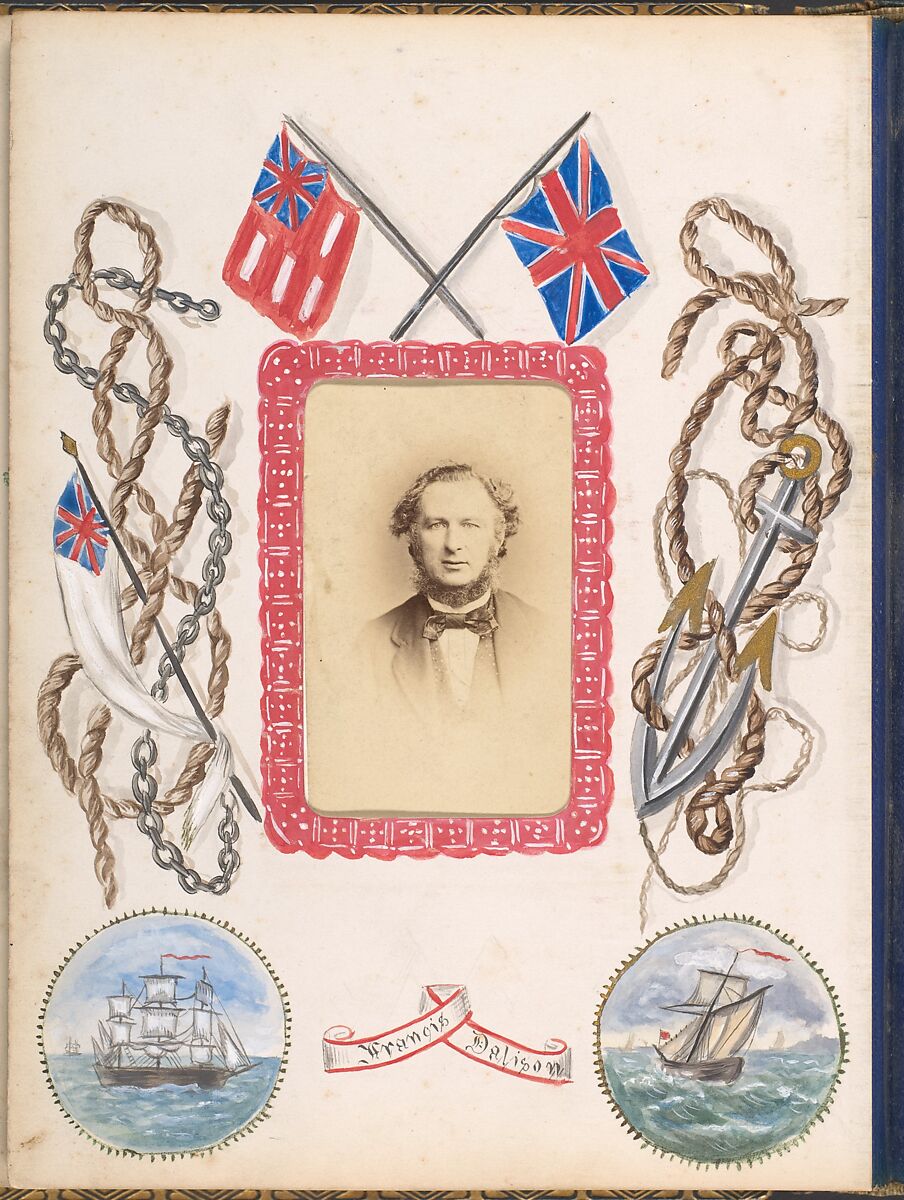 Francis Dalison